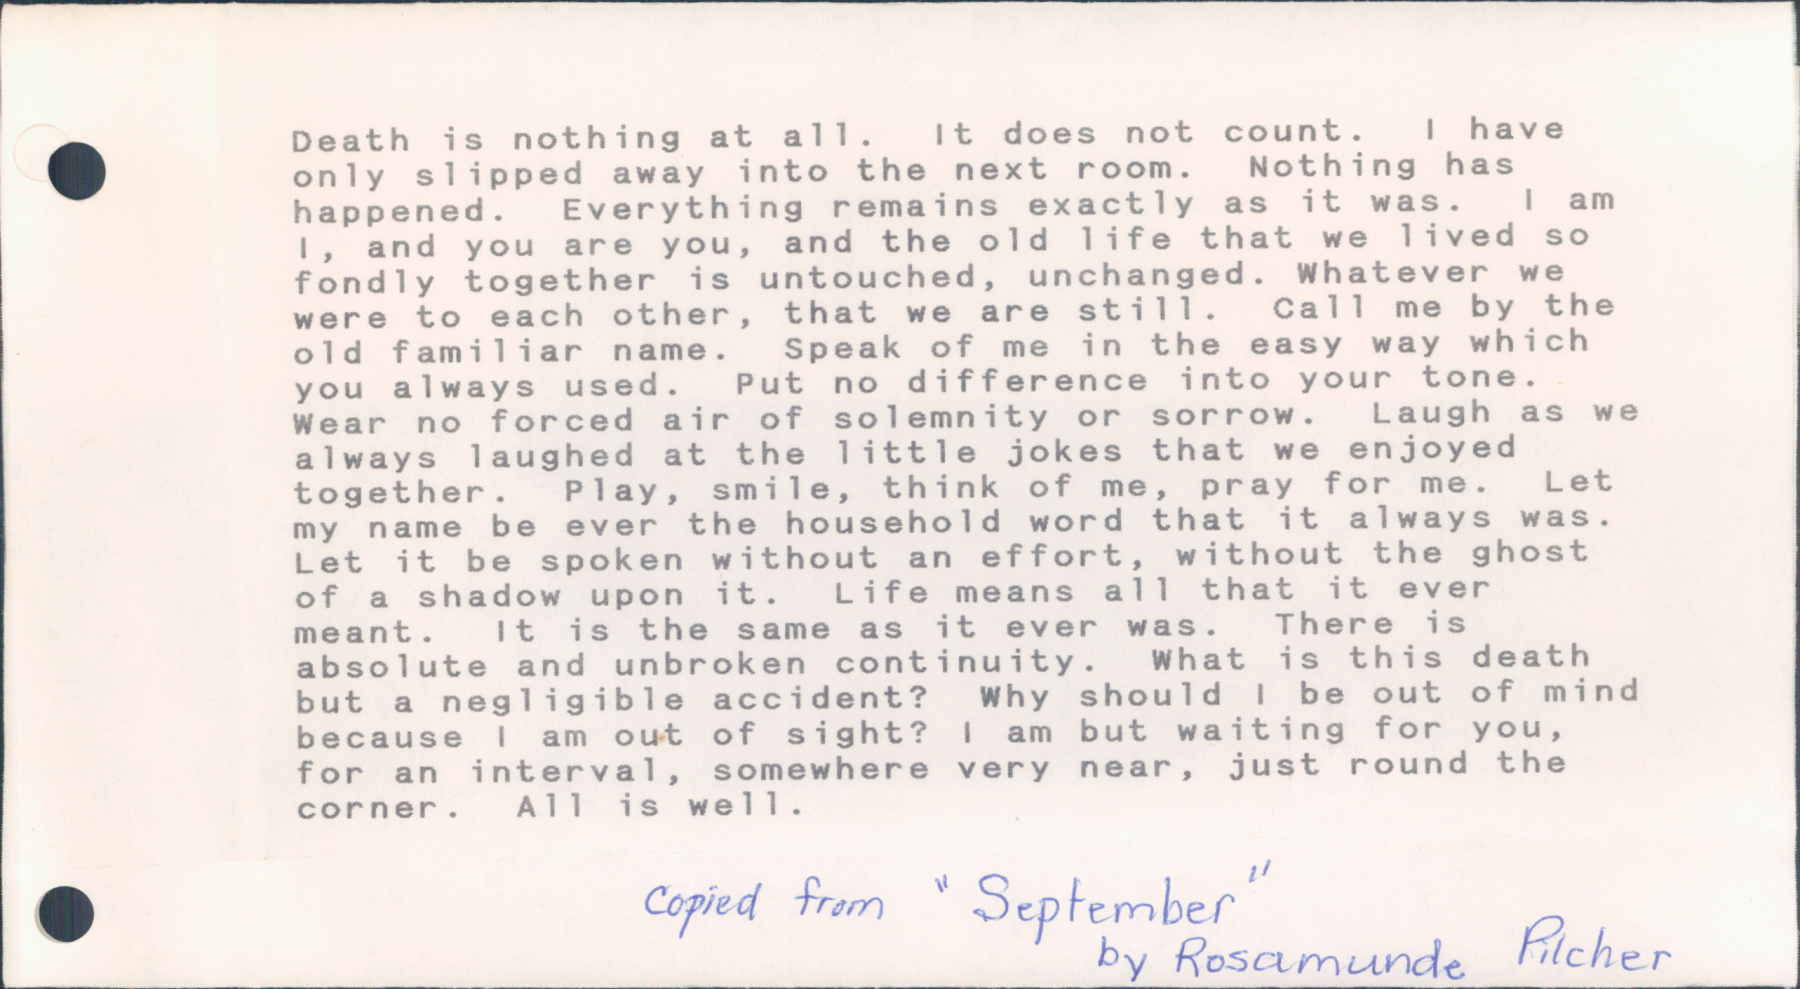 Death is nothing at all.  It does not count.  I have
only slipped away into the next room.  Nothing has
happened.  Everything remains exactly as it was.  I am
I, and you are you, and the old life that we lived so
fondly together is untouched, unchanged. Whatever we
were to each other, that we are still.  Call me by the
old familiar name.  Speak of me in the easy way which
you always used.  Put no difference into your tone.
Wear no forced air of solemnity or sorrow.  Laugh as we
always laughed at the little jokes that we enjoyed
together.  Play, smile, think of me, pray for me.  Let
my name be ever the household word that it always was.
Let it be spoken without an effort, without the ghost
of a shadow upon it.  Life means all that it ever
meant.  It is the same as it ever was.  There is
absolute and unbroken continuity.  What is this death
but a negligible accident?  Why should I be out of mind
because I am out of sight? I am but waiting for you,
for an interval, somewhere very near, just round the
corner.  All is well.
Copied from "September"
by Rosamunde Pilcher